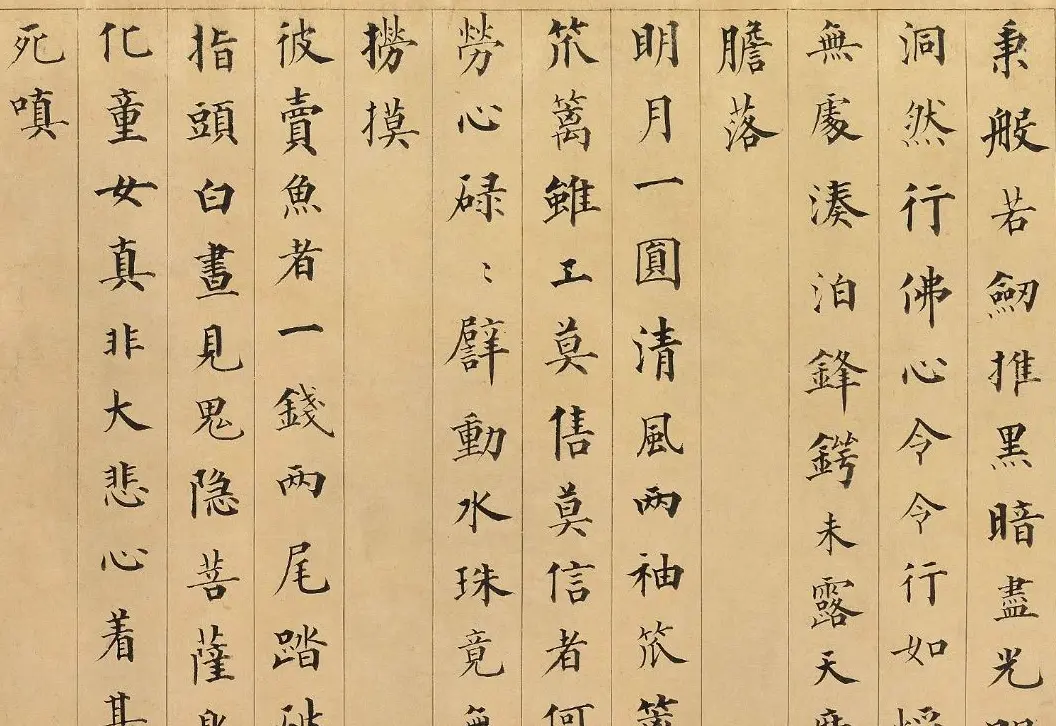 秉般若劔推黑暗盡光
洞然行佛心令令行如
無處湊泊鋒鍔未露天魔
膽落
明月一圓清風两袖笊篱
笊篱雖工莫售莫信者何
勞心碌〻譬動水珠竟無
撈摸
彼賣魚者一錢两尾踏破
指頭白晝見鬼隐菩薩身
化童女真非大悲心着甚
死嗔